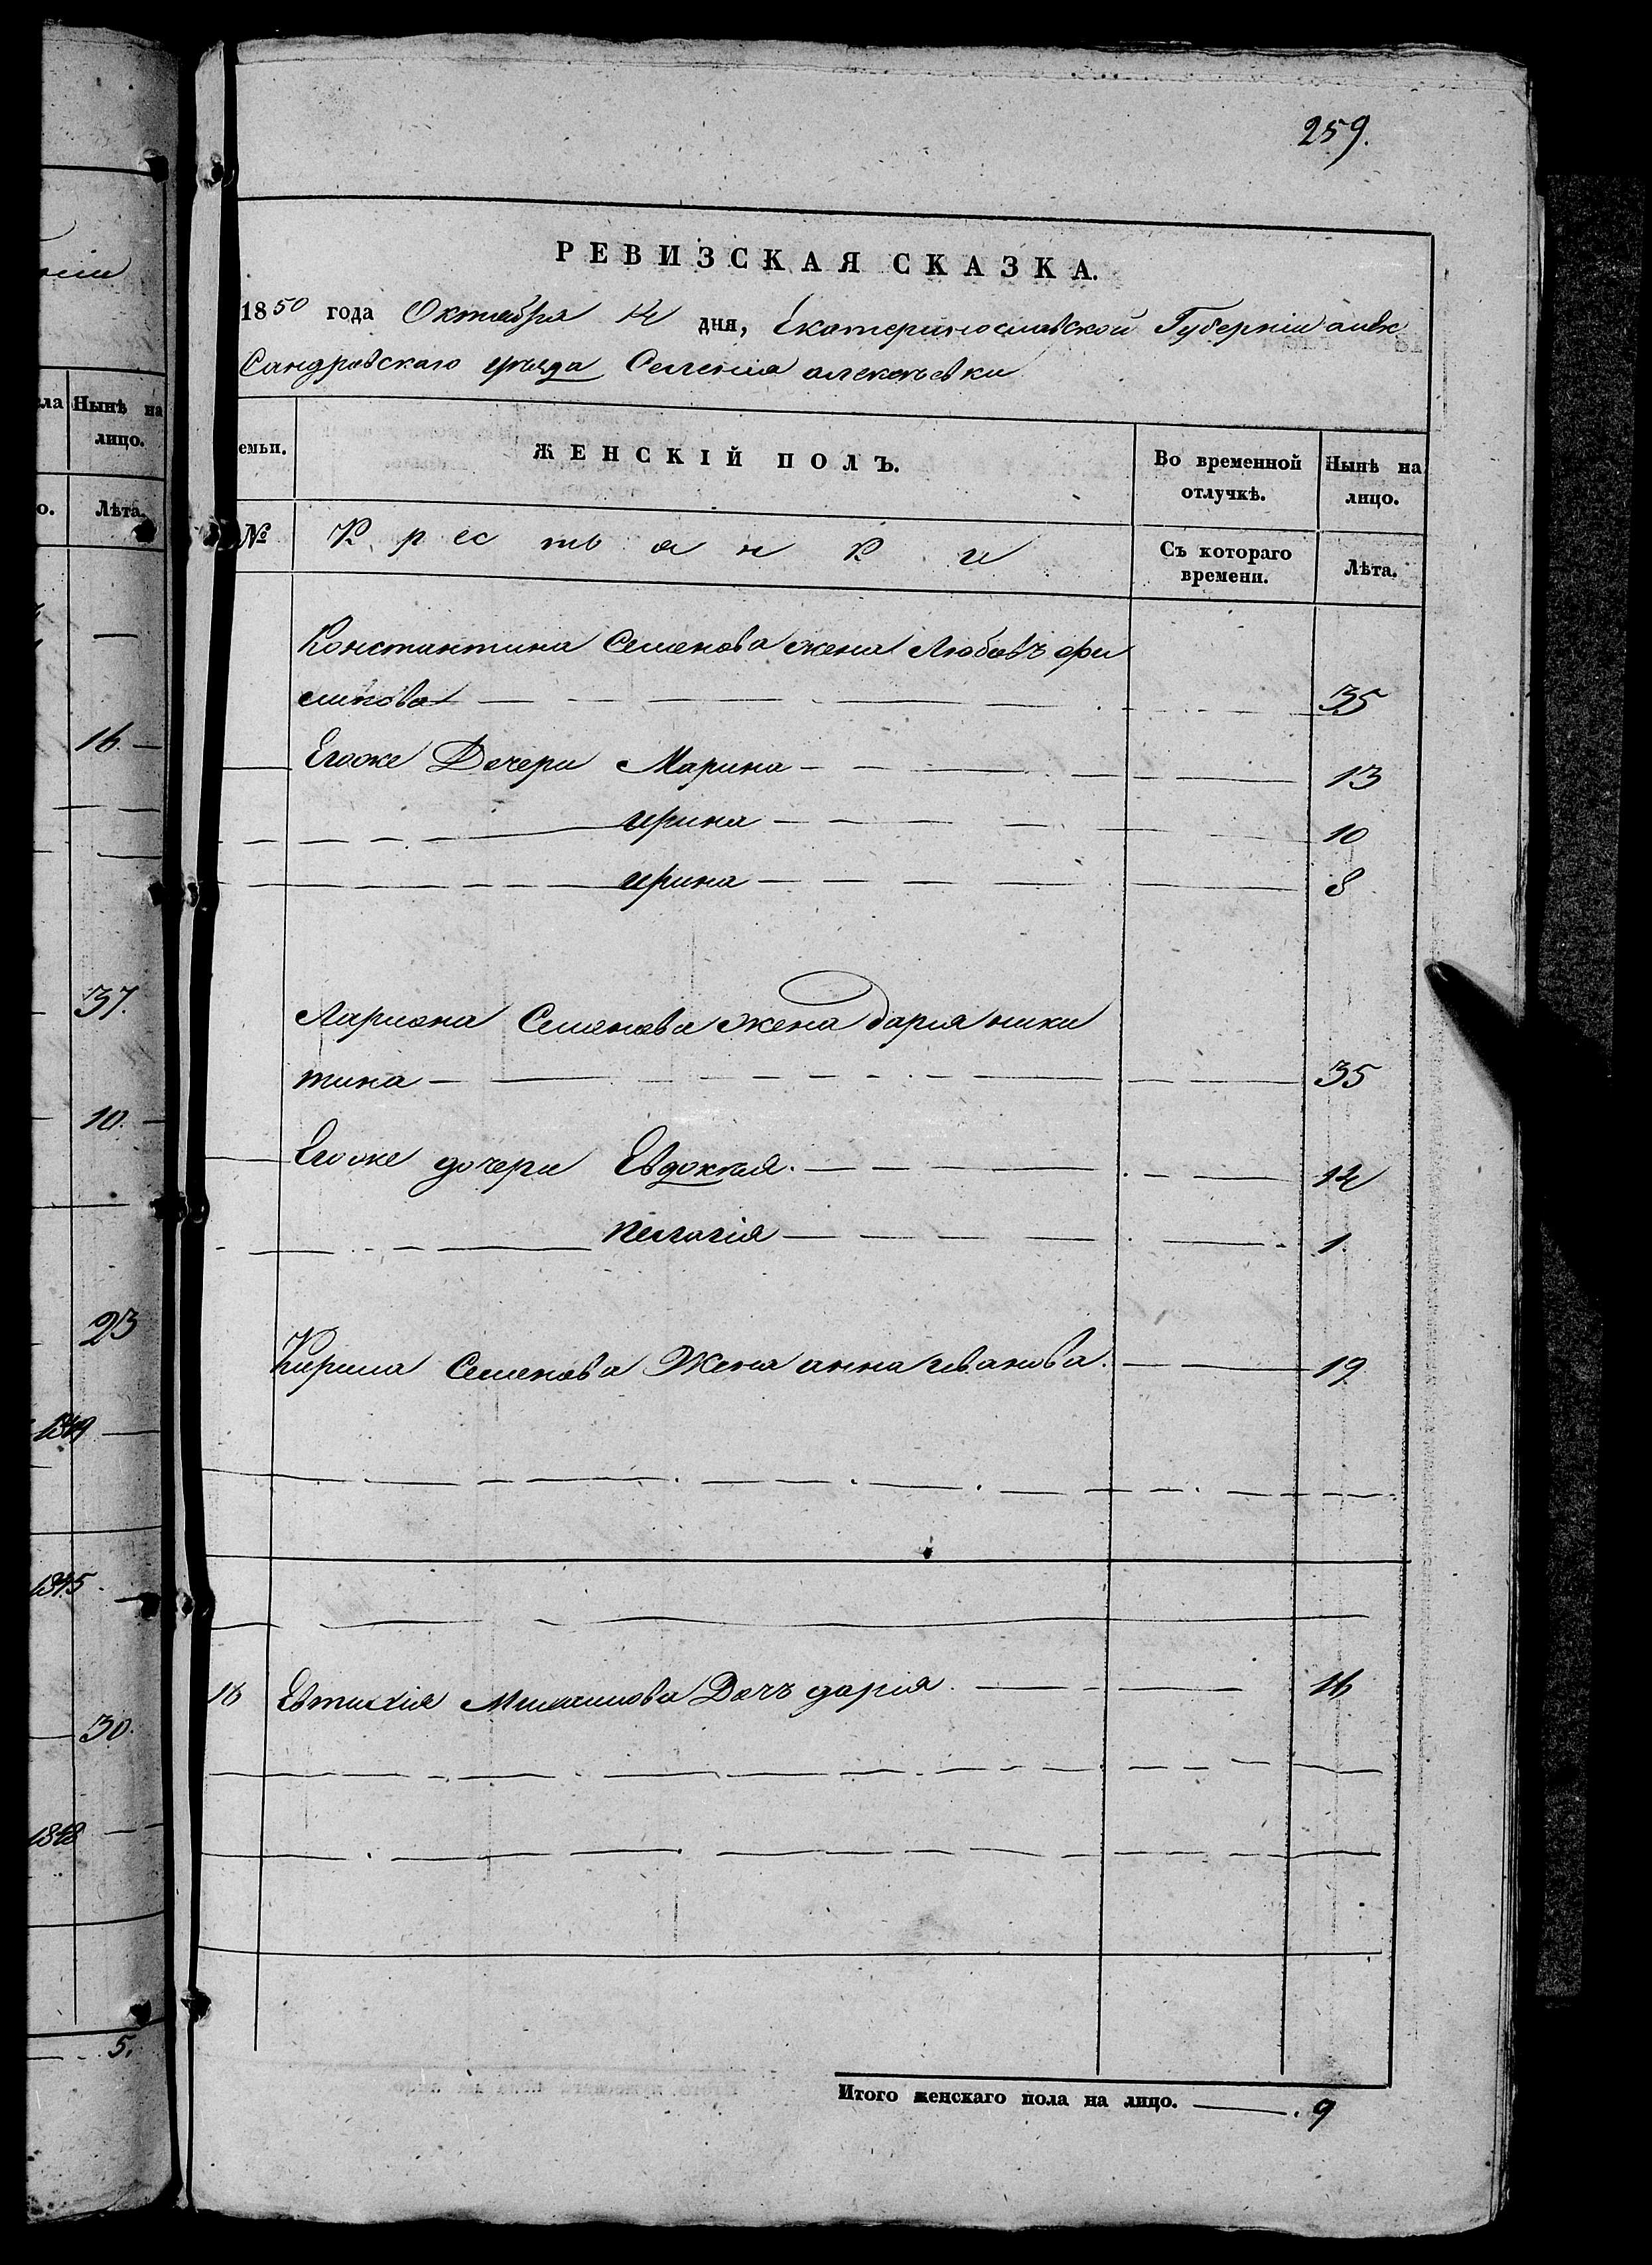 259.
РЕВИЗСКАЯ СКАЗКА.
1850 года Октября 14 дня, Екатеринославской Губерніи алек
Сандровскаго уѣзда Селенія алексѣевки
ніи
ла Нынѣ на
лицо.
о. Лѣта.
емьи. ЖЕНСКІЙ ПОЛЪ. Во временной отлучкѣ. Нынѣ на лицо.
№ Крестьянки Съ котораго времени. Лѣта.
Константина Семенова жена Любовъ фи
липова 35
Егоже Дочери Марина 13
ирина 10
ирина 8
Лариона Семенова жена дарія ники
тина 35
Егоже дочери Евдокия 14
пелагія 1
Кирила Семенова Жена анна иванова. 19
16 Евтихія Дочъ дарія 16
Итого женскаго пола на лицо. 9
16.
37.
10.
23
1849
1845
30.
1848
5.